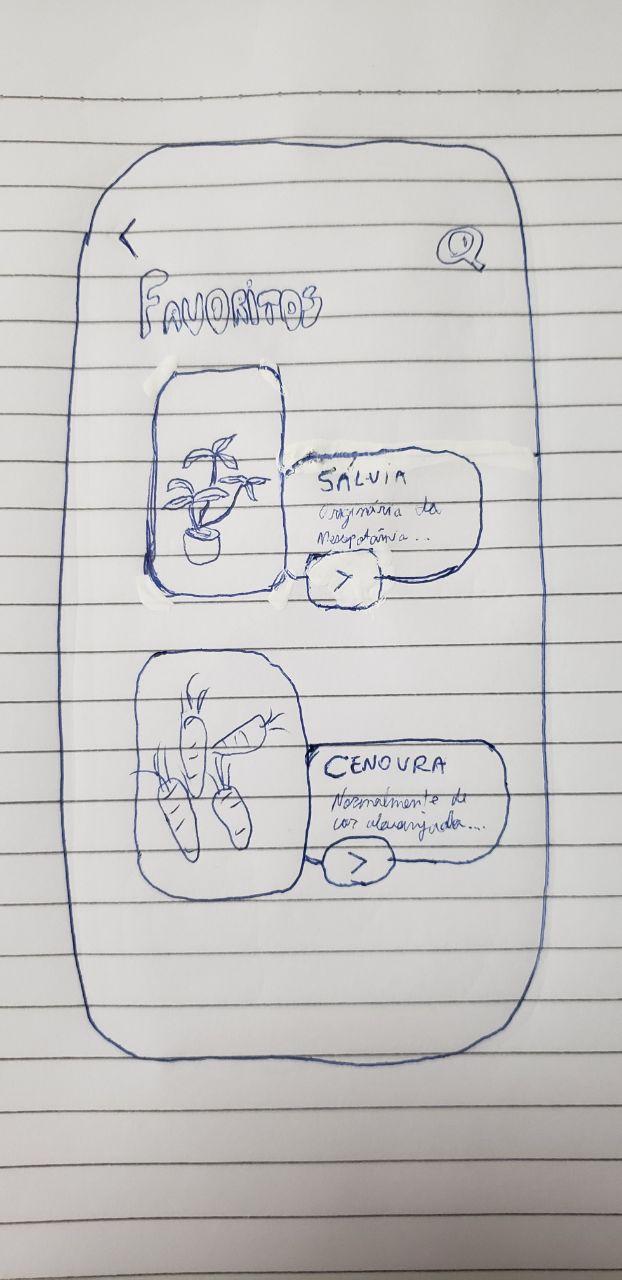 FAVORITOS
SÁLVIA
Originária da
Mesopotâmia...
CENOURA
Normalmente de
cor alaranjada...